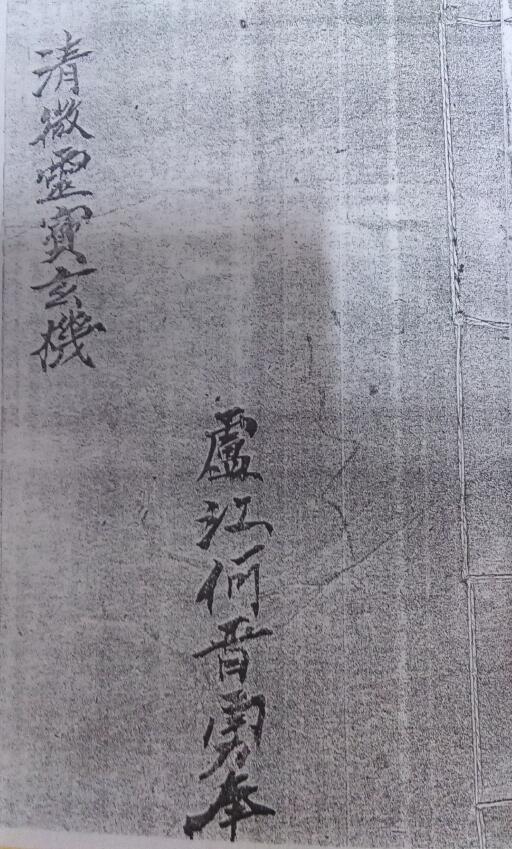 盧江何晋勇奉
清微靈寶玄機